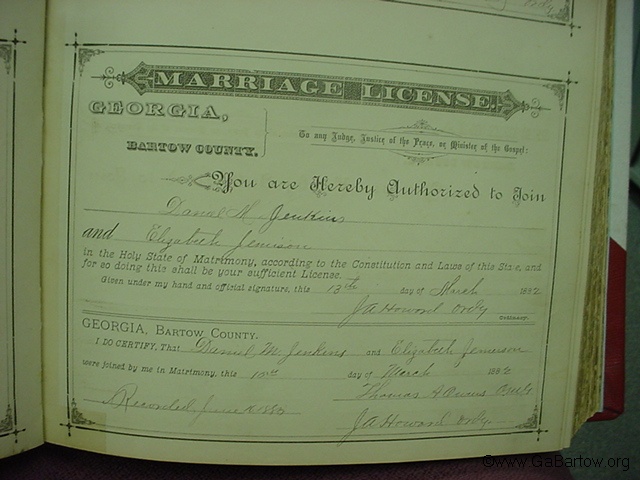 MARRIAGE LICENSE.
GEORGIA,
BARTOW COUNTY.
To any Judge, Justice of the Peace, or Minister of the Gospel:
You are Hereby Authorized to Join
Daniel M. Jenkins
and Elizabeth Jemison
in the Holy State of Matrimony, according to the Constitution and Laws of this State, and
for so doing this shall be your sufficient License.
Given under my hand and official signature, this 13th day of March 1882
JA Howard Ordy
Ordinary.
GEORGIA, BARTOW COUNTY.
I DO CERTIFY, That Daniel M. Jenkins and Elizabeth Jemerson
were joined by me in Matrimony, this day of March 1882
Thomas A
Recorded, June 1883
JA Howard Ordy
©www.GaBartow.org